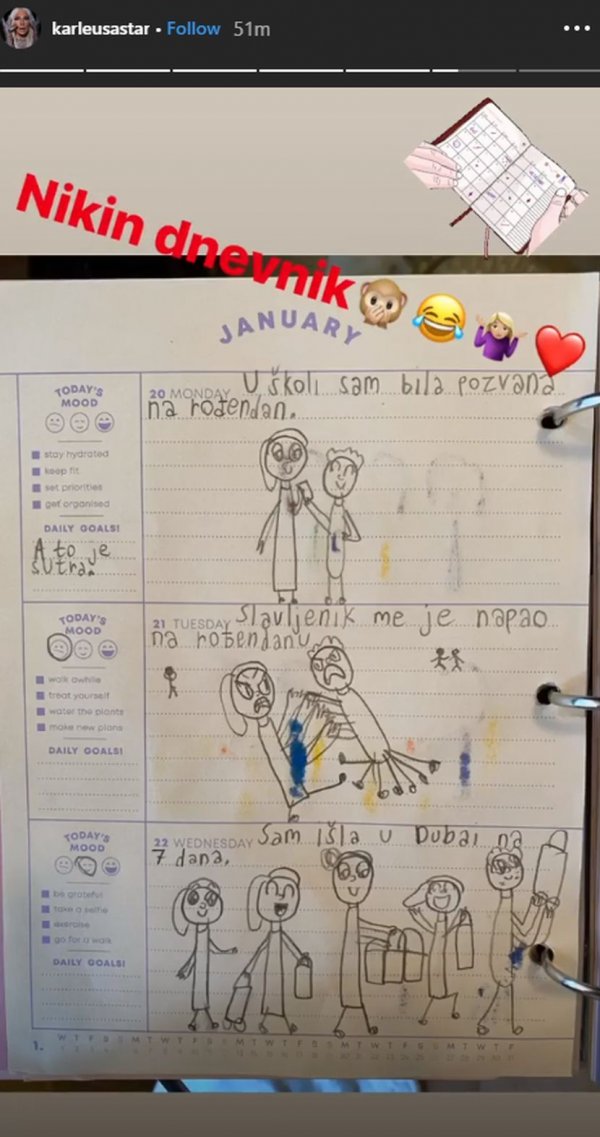 karleusastar • Follow 51m
Nikin dnevnik
JANUARY
TODAY'S
MOOD
stay hydrated
keep fit
set priorities
get organised
DAILY GOALS!
A to je
sutra.
20 MONDAY U školi sam bila pozvana
na rođendan.
TODAY'S
MOOD
walk awhile
treat yourself
water the plants
make new plans
DAILY GOALS!
21 TUESDAY Slavljenik me je napao
na rođendanu
TODAY'S
MOOD
be grateful
take a selfie
exercise
go for a walk
DAILY GOALS!
22 WEDNESDAY Sam išla u Dubai na
7 dana.
1.